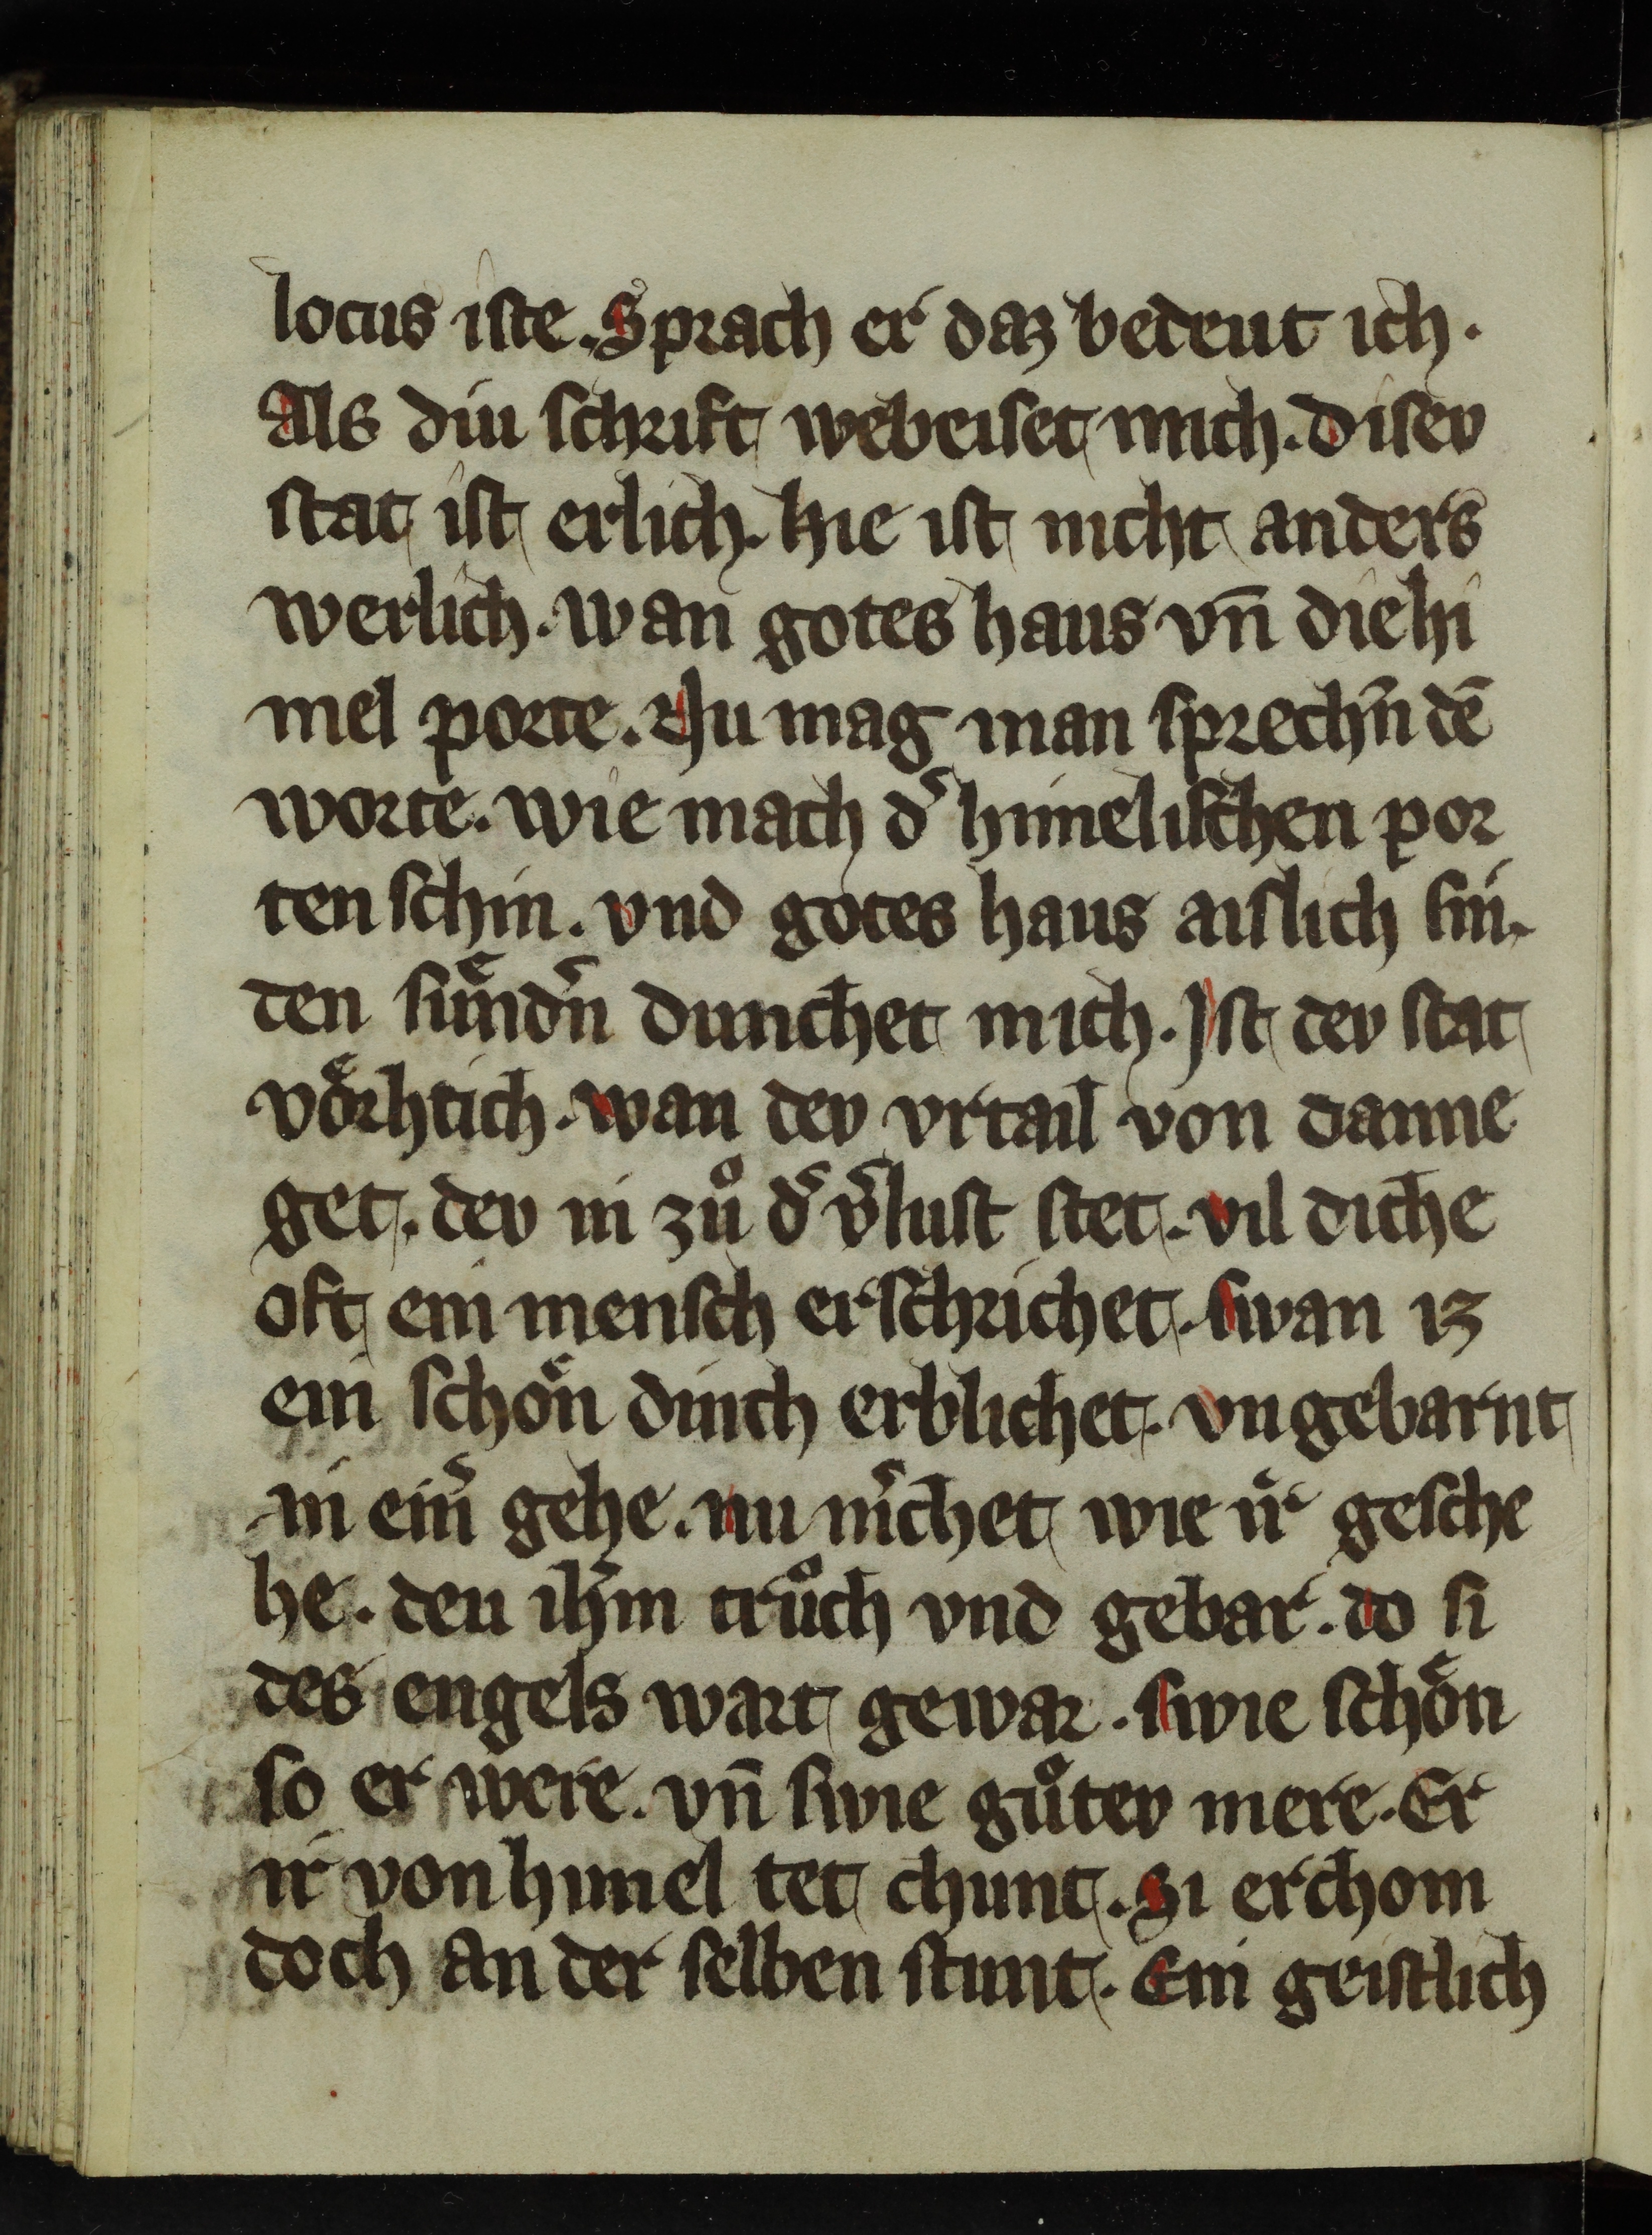 locus iste. Sprach er daz bedeut ich.
Als diu schrift webeiset mich. Disev
stat ist erlich. hie ist nicht anders
werlich. wan gotes haus vn̄ die hi
mel porte. Nu mag man sprechn̄ dē
worte. wie mach d͛ himelischen por
ten schin. vnd gotes haus aislich sin.
den suͤnd͛n dunchet mich. Jst dev stat
voͤrhtich. wan dev vrtail von danne
get. dev in zuͦ d͛ v͛lust stet. vil diche
oft ein mensch erschrichet. swan iz
ein schoͤn dinch erblichet. vngebarnt
in ein͛ gehe. nu m͛chet wie ir gesche
he. deu ih̄m truͦch vnd gebar. do si
des engels wart gewar. swie schoͤn
so er were. vn̄ swie guͦtev mere. Er
ir von himel tet chunt. Si erchom
doch an der selben stunt. Ein geistlich